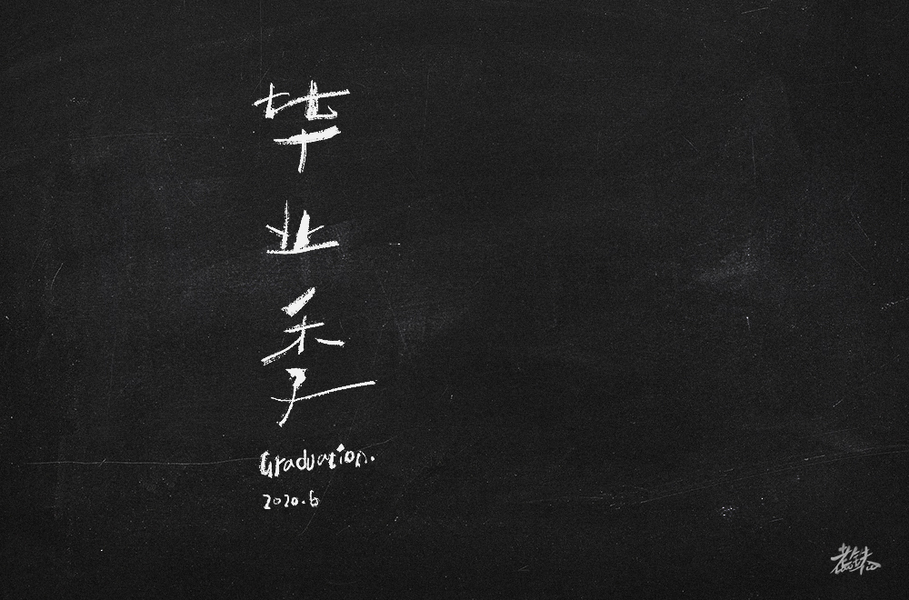 毕业季
Graduation.
2020.6